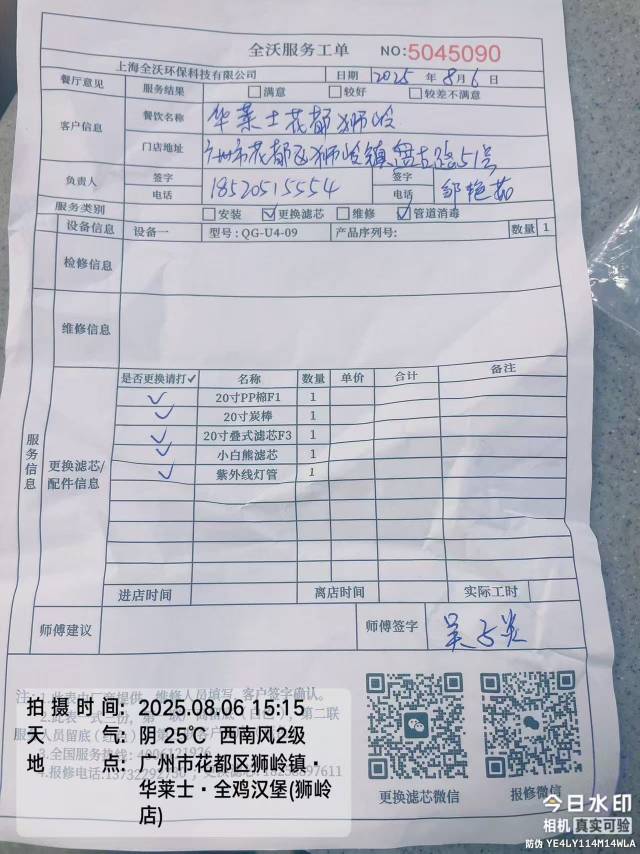 全沃服务工单 NO:5045090
上海全沃环保科技有限公司 日期 2025 年 8 月 6 日
餐厅意见 服务结果 满意 较好 较差不满意
客户信息 餐饮名称 华莱士花都狮岭
门店地址 广州市花都区狮岭镇盘古路51号
负责人 签字 电话 18520515554 签字 电话 邹艳茹
服务类别 安装 ✓更换滤芯 维修 ✓管道消毒
设备信息 设备一 型号:QG-U4-09 产品序列号: 数量 1
检修信息
维修信息
服务信息
更换滤芯/配件信息
是否更换请打✓ 名称 数量 单价 合计 备注
✓ 20寸PP棉F1 1
✓ 20寸炭棒 1
✓ 20寸叠式滤芯F3 1
✓ 小白熊滤芯 1
✓ 紫外线灯管 1
进店时间 离店时间 实际工时
师傅建议 师傅签字
注:1.此表由厂商提供,维修人员填写,客户签字确认。
3.全国服务热线:4006121976
更换滤芯微信 报修微信
拍摄时间: 2025.08.06 15:15
天 气: 阴 25℃ 西南风2级
地 点: 广州市花都区狮岭镇·
华莱士·全鸡汉堡(狮岭
店)
今日水印
相机 真实可验
防伪 YE4LY114M14WLA